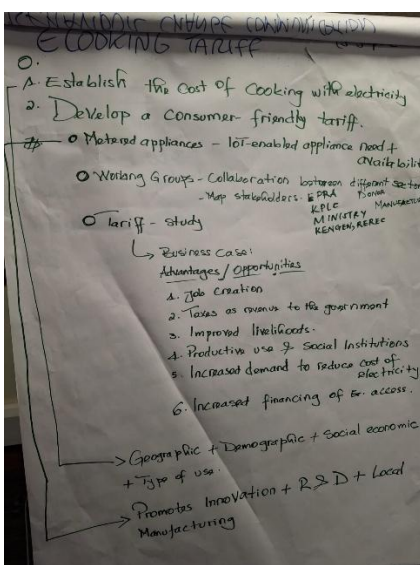 BEHAVIOUR CHANGE COMMUNICATION
ECOOKING TARIFF
O.
1. Establish the cost of cooking with electricity
2. Develop a consumer-friendly tariff.
Metered appliances - IoT-enabled appliance need +
availabilit
Working Groups - Collaboration between different sector
- Map stakeholders. EPRA Donor
KPLC MANUFACTUR
MINISTRY
KENGEN, REREC
Tariff - study
Business case:
Advantages/Opportunities
1. Job creation
2. Taxes as revenue to the government
3. Improved livelihoods.
4. Productive use & Social Institutions
5. Increased demand to reduce cost of
electricity
6. Increased financing of access.
Geographic + Demographic + Social economic
+ Type of use.
Promotes Innovation + R&D + Local
Manufacturing